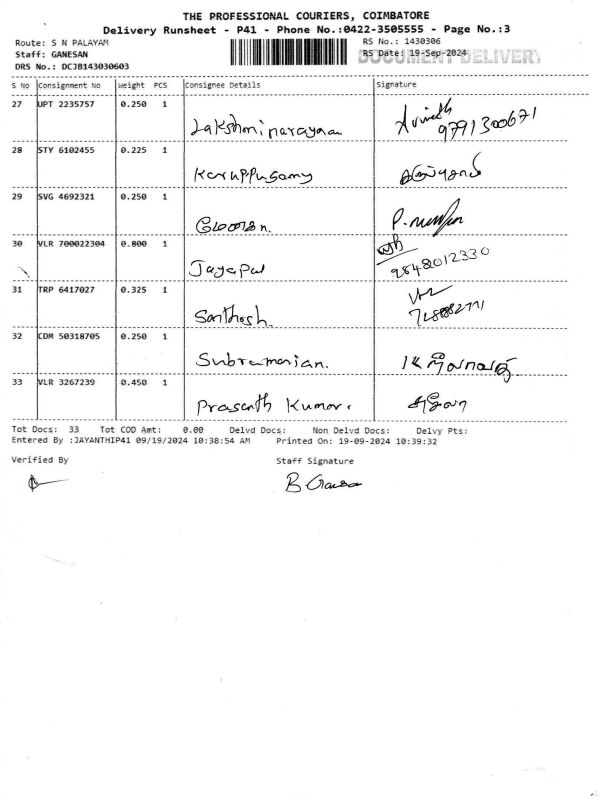 THE PROFESSIONAL COURIERS, COIMBATORE
Delivery Runsheet - P41 - Phone No.:0422-3505555 - Page No.:3
Route: S N PALAYAM
RS No.: 1430306
Staff: GANESAN
RS Date: 19-Sep-2024
DOCUMENT DELIVERY
DRS No.: DCJB143030603
S No Consignment No Weight PCS Consignee Details Signature
27 UPT 2235757 0.250 1
Lakshminarayana
9791300671
28 STY 6102455 0.225 1
Karuppusamy
29 SVG 4692321 0.250 1
30 VLR 700022304 0.800 1
Jayapal 9848012330
31 TRP 6417027 0.325 1
Santhosh
32 CDM 50318705 0.250 1
Subramanian.
33 VLR 3267239 0.450 1
Prasanth Kumar.
Tot Docs: 33 Tot COD Amt: 0.00 Delvd Docs: Non Delvd Docs: Delvy Pts:
Entered By :JAYANTHIP41 09/19/2024 10:38:54 AM Printed On: 19-09-2024 10:39:32
Verified By Staff Signature